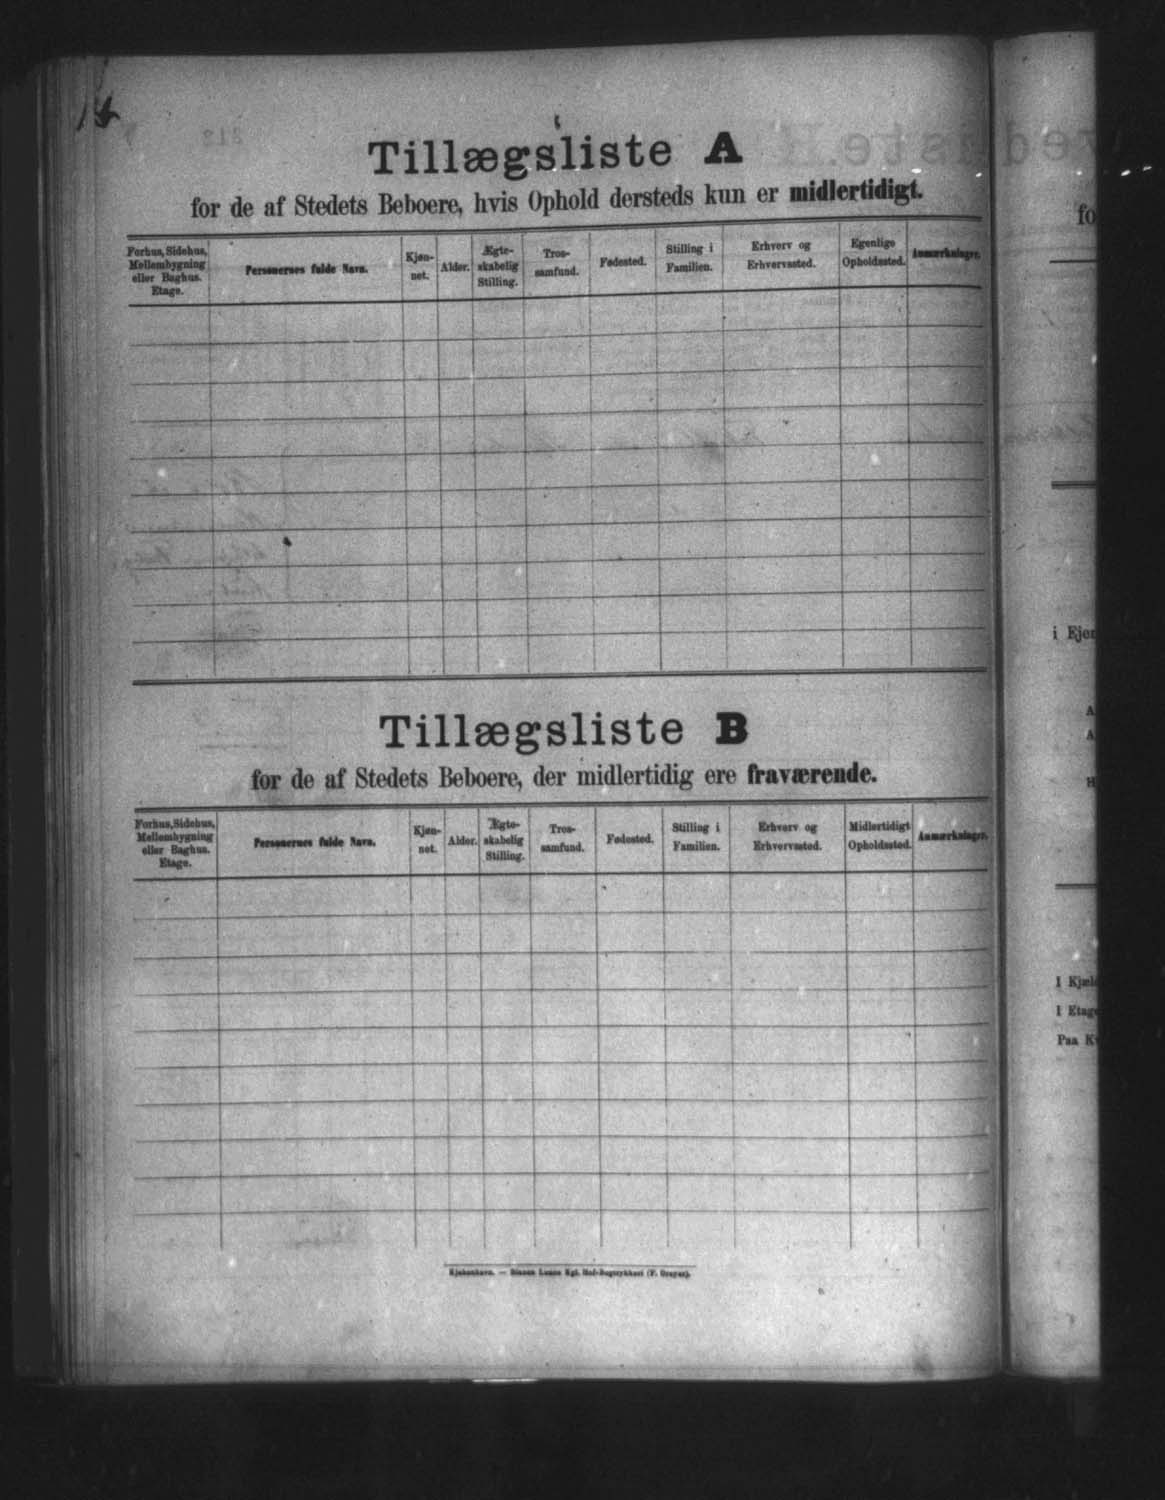 Tillægsliste A
for de af Stedets Beboere, hvis Ophold dersteds kun er midlertidigt.
Forhus, Sidehus, Mellembygning eller Baghus. Etage.
Personernes fulde Navn.
Kjøn-
net.
Alder.
Ægte-
skabelig
Stilling.
Tros-
samfund.
Fødested.
Stilling i
Familien.
Erhverv og
Erhvervssted.
Egenlige
Opholdssted.
Anmærkninger.
Tillægsliste B
for de af Stedets Beboere, der midlertidig ere fraværende.
Forhus, Sidehus,
Mellembygning
eller Baghus.
Etage.
Personernes fulde Navn.
Kjøn-
net.
Alder.
Ægte-
skabelig
Stilling.
Tros-
samfund.
Fødested.
Stilling i
Familien.
Erhverv og
Erhvervssted.
Midlertidigt
Opholdssted.
Anmærkninger.
Kjøbenhavn. — Bianco Lunos Kgl. Hof-Bogtrykkeri (F. Dreyer).
fo
i Ejen
A
A
H
I Kjæld
I Etage
Paa Kv